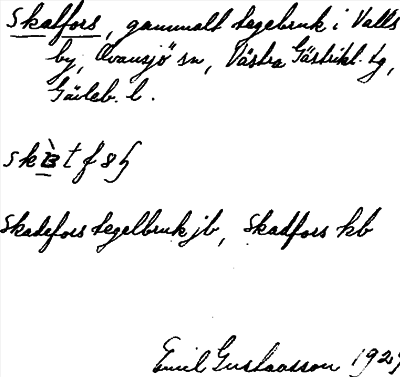 Skatfors, gammalt tegelbruk i Valls
by, Ovansjö sn, Västra Gästrikl. tg,
Gävleb. l.
Skadefors tegelbruk jb, Skadfors kb
Emil Gustavsson 1929